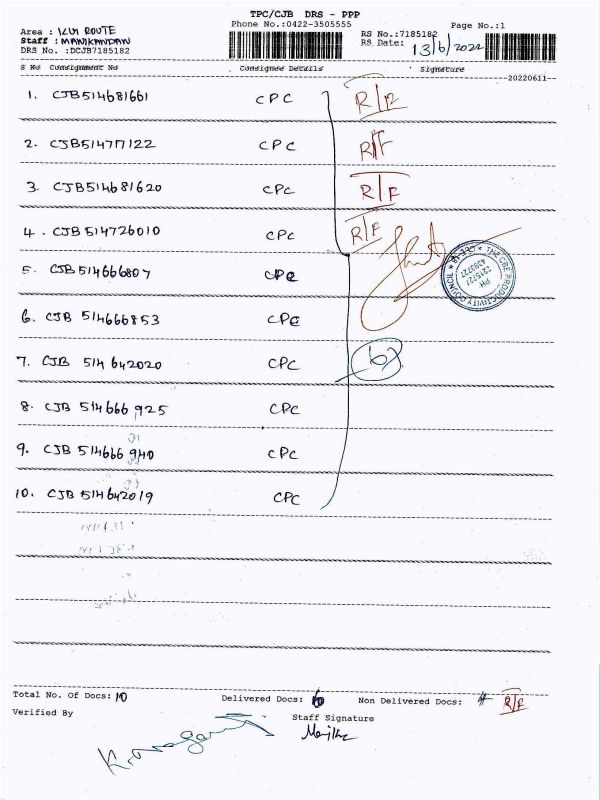 TPC/CJB DRS - PPP
Phone No.:0422-3505555
Page No.:1
Area : ROUTE
Staff : MANIKANDAN
DRS No. :DCJB7185182
RS No.:7185182
RS Date: 13/6/2022
S No Consignment No Consignee Details Signature
20220611
1. CJB514681661 CPC
2. CJB514717122 CPC R/F
3. CJB514681620 CPC R/F
4. CJB 514726010 CPC R/F
5. CJB 514666807 CPC
6. CJB 514666853 CPC
7. CJB 514 642020 CPC
8. CJB 514666 925 CPC
9. CJB 514666 940 CPC
10. CJB 514642019 CPC
THE CRE PRODUCTIVITY COUNCIL
PH
Total No. Of Docs: 10 Delivered Docs: 6 Non Delivered Docs: 4 R/F
Verified By Staff Signature